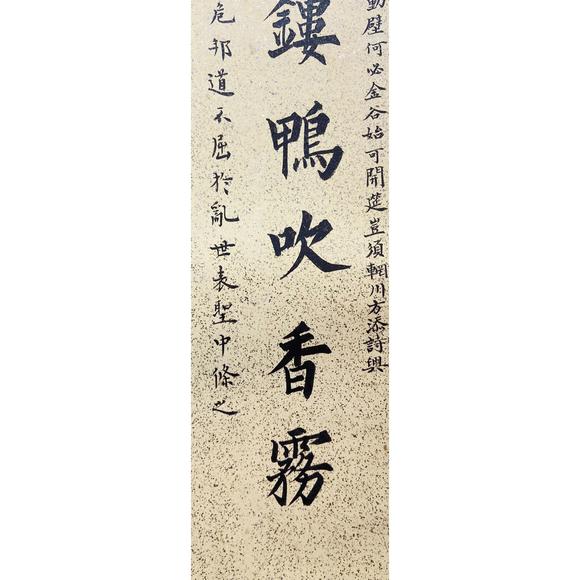 動壁何必金谷始可開筵豈須輞川方添詩興
鏤鴨吹香霧
危邦道不屈於亂世表聖中條之